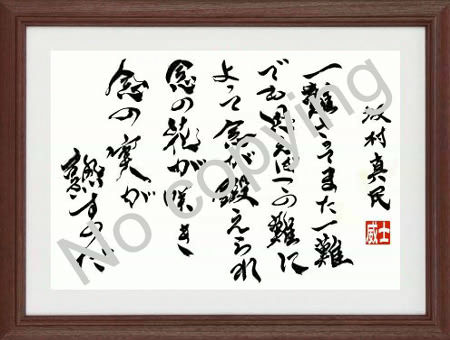 坂村真民
一難さってまた一難
でも思えばこの難に
よって念が鍛えられ
念の花が咲き
念の實が
熟すのだ
士威
No copying